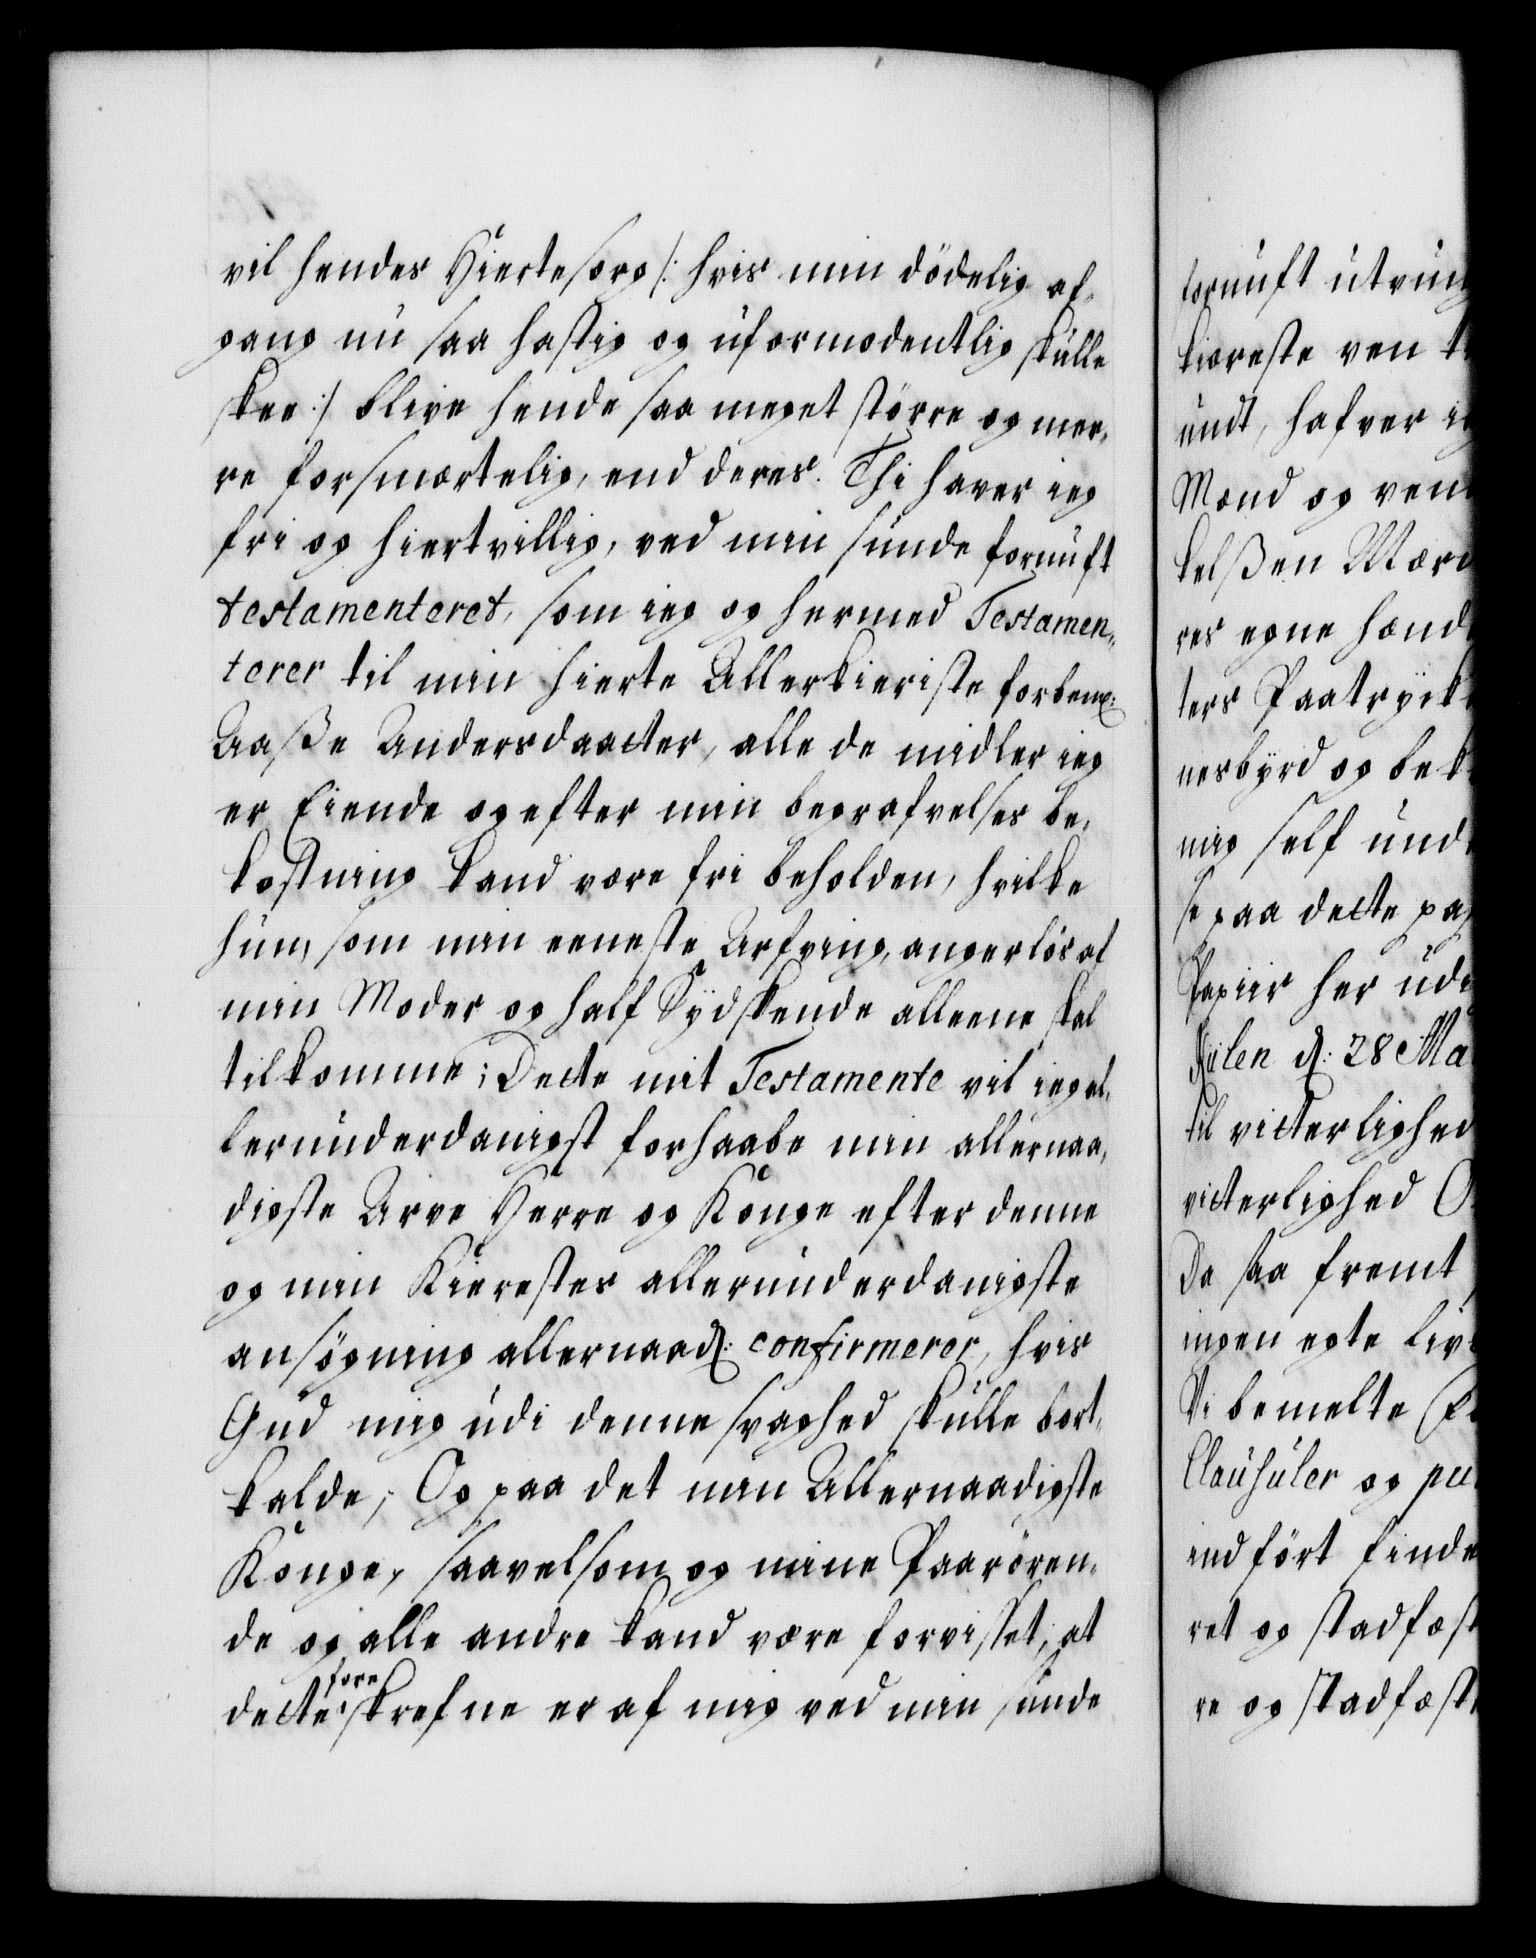 vil hendes Hiertesorg /: hvis min dödelig af-
gang nu saa hastig og uformodentlig skulle
skee :/ blive hende saa meget större og mer-
re forsmærtelig, end deres. Thi haver ieg
fri og hiertvillig, ved min sunde fornuft
testamenteret, som ieg og hermed Testamen-
terer til min hierte Allerkieriste forbem:
Aaße Andersdaatter, alle de midler ieg
er Eiende og efter min begrafvelses be-
kostning kand være fri beholden, hvilke
hun, som min eeneste Arfving, angerlös af
min Moder og half Sydskende alleene skal
tilkomme; Dette mit Testamente vil ieg al-
lerunderdanigst forhaabe min allernaa-
digste Arve Herre og Konge efter denne
og min Kierestes allerunderdanigste
ansögning allernaad: confirmerer, hvis
Gud mig udi denne svaghed skulle bort-
kalde; Og paa det min Allernaadigste
Konge, saavelsom og mine Paarören-
de og alle andre kand være forvisset, at
fore
dette skrefne er af mig ved min sunde
fornuft utvung
kiæreste ven t
undt, hafver i
Mænd og ven
kelßen Mær
res egne hænd
ters Paatryck
nesbyrd og bek
mig self und
se paa dette pa
Papiir her ud
d: 28 Ma
til vitterlighed
vitterlighed O
Da saa fremt
ingen egte liv
Vi bemelte
Clausuler og pu
indfört finde
ret og stadfæst
re og stadfæst